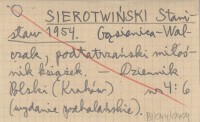 SIEROTWIŃSKI Stani-
sław 1954. Gąsienica-Wal-
czak, podtatrzański miłoś-
nik książek. — Dziennik
Polski (Kraków) nr 4: 6
(wydanie podhalańskie).